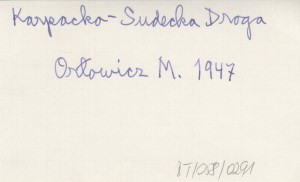 Karpacko-Sudecka Droga
Orłowicz M. 1947
IT/058/0291